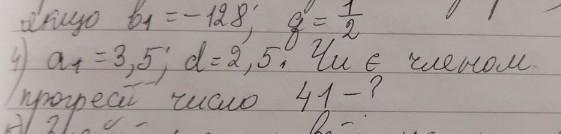 якщо b₁ = -128; q = 1/2
4) a₁ = 3,5; d = 2,5. Чи є членом
прогресії число 41 - ?